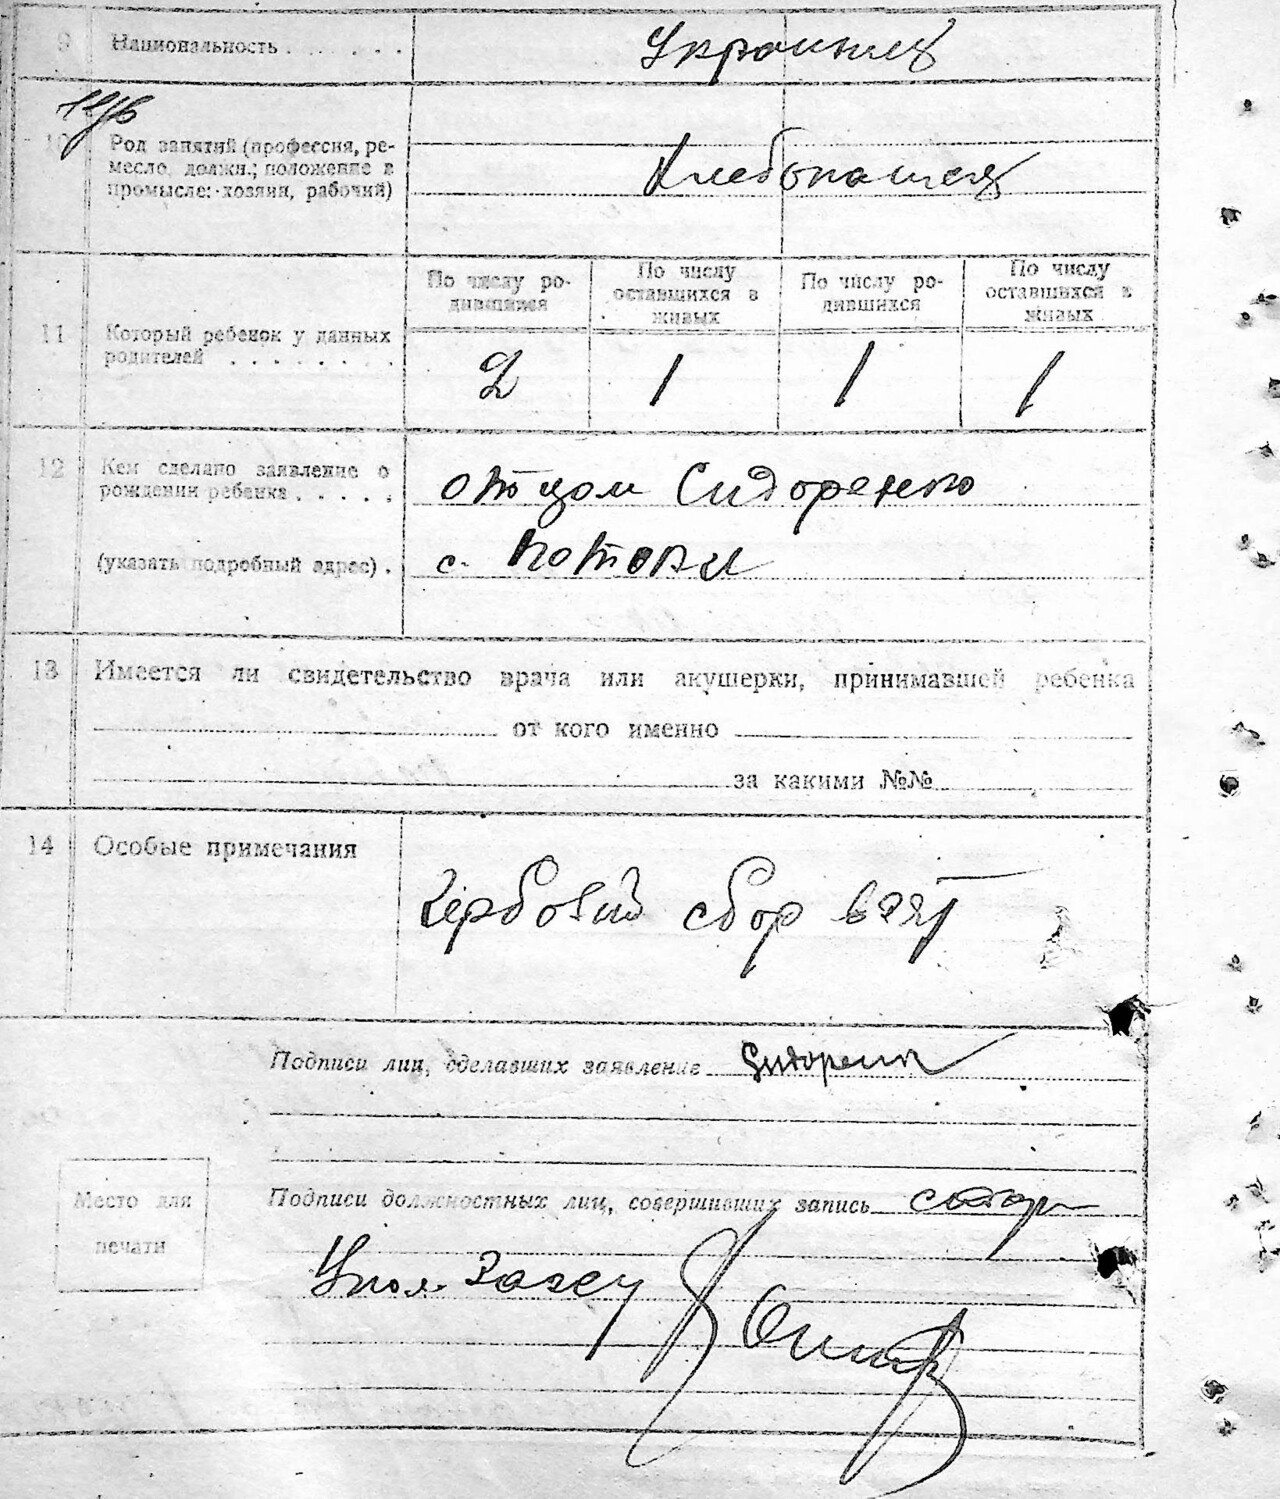 9 Национальность . . . . . . . Украинцы
10 Род занятий (профессия, ре-
месло, должн.; положение в
промысле: хозяин, рабочий)
Хлебопашец
По числу ро-
дившихся
По числу
оставшихся в
живых
По числу ро-
дившихся
По числу
оставшихся в
живых
11 Который ребенок у данных
родителей . . . . . . . .
2 1 1 1
12 Кем сделано заявление о
рождении ребенка . . . . .
отцом Сидоренко
(указать подробный адрес) . с. Потоки
13 Имеется ли свидетельство врача или акушерки, принимавшей ребенка
от кого именно
за какими №№
14 Особые примечания
Гербовий сбор взят
Подписи лиц, сделавших заявление Сидоренко
Место для
печати
Подписи должностных лиц, совершивших запись
Упол